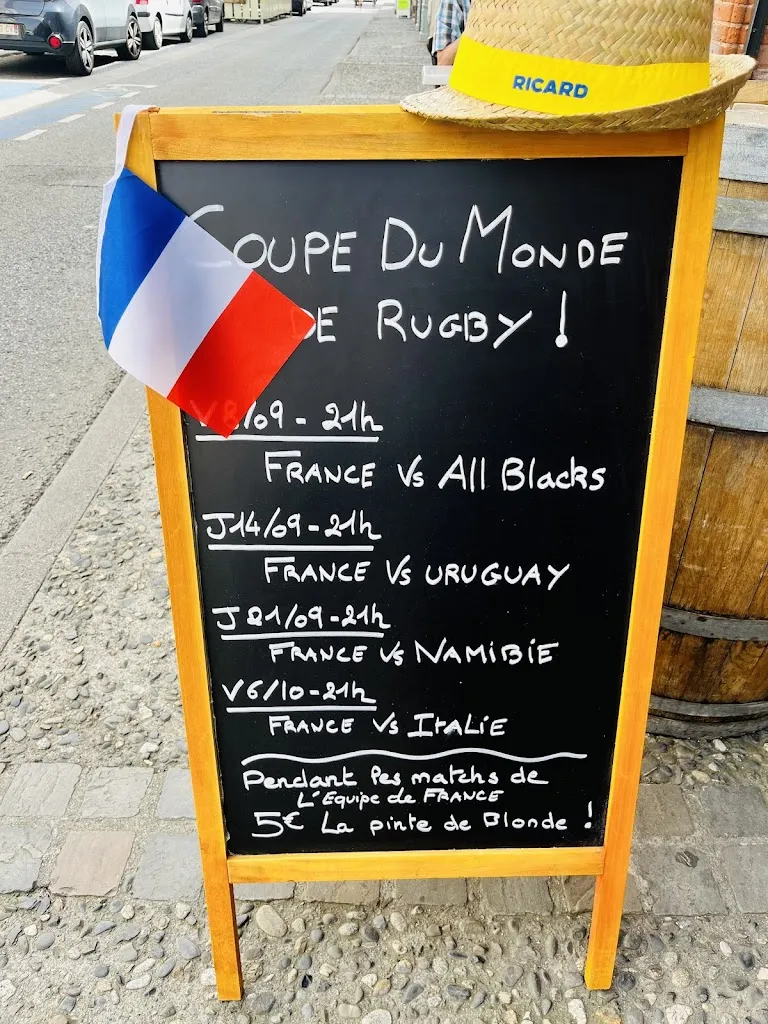 RICARD
COUPE DU MONDE
DE RUGBY !
V8/09 - 21h
FRANCE Vs All Blacks
J14/09 - 21h
FRANCE Vs URUGUAY
J 21/09 - 21h
FRANCE Vs NAMIBIE
V6/10 - 21h
FRANCE Vs ITALIE
Pendant les matchs de
L'Equipe de FRANCE
5€ La pinte de Blonde !